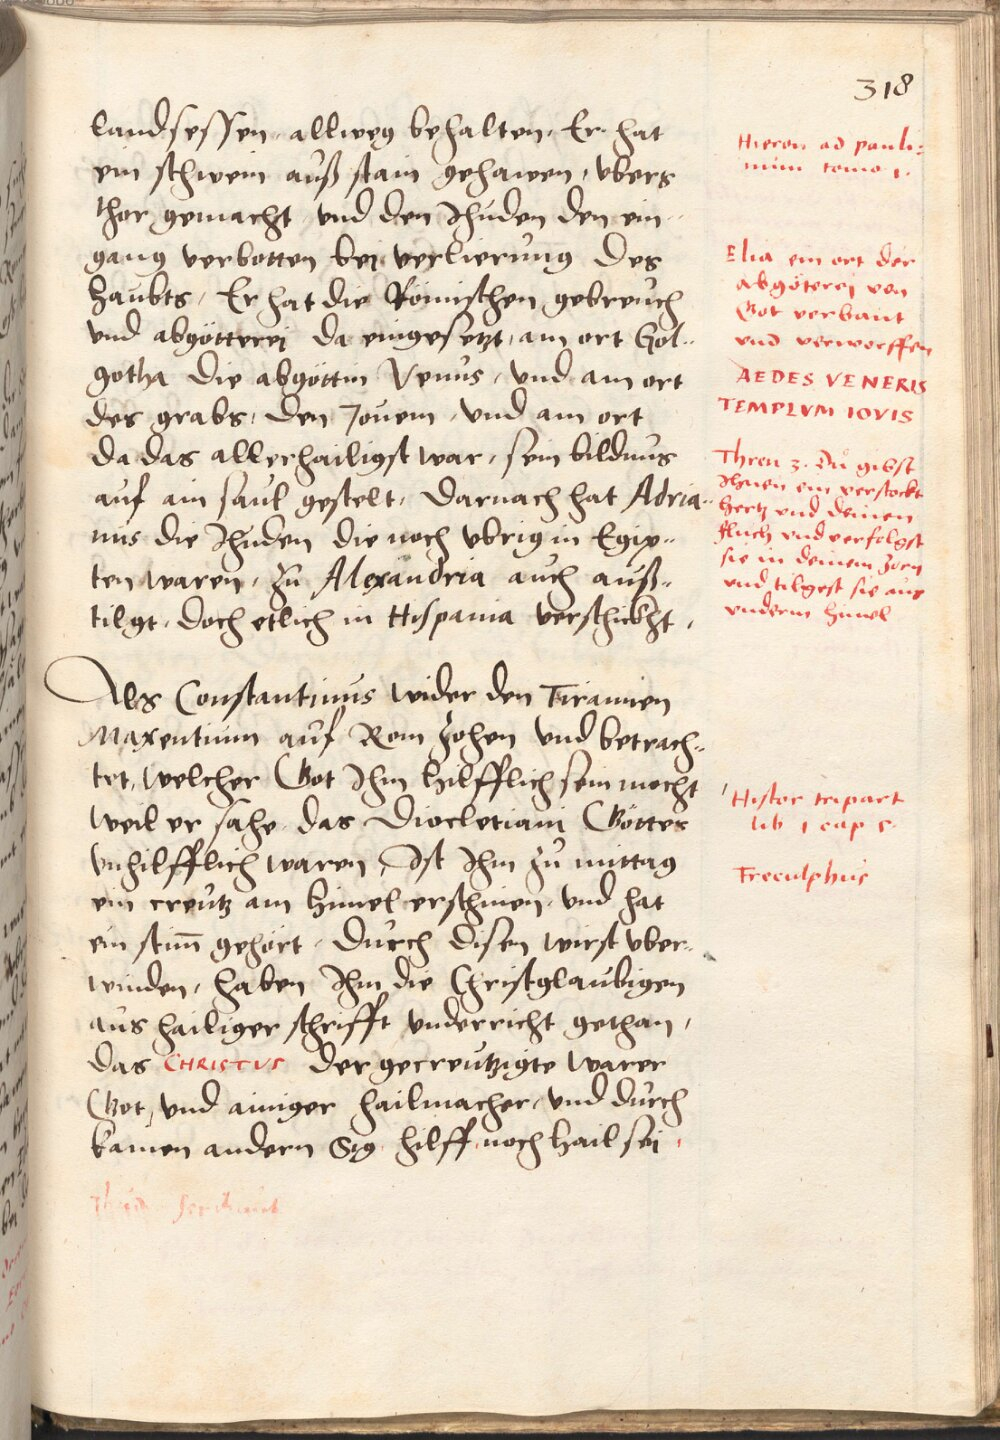 318
landsessen, allweg behalten, Er hat
ein schwein auß stain gehawen, vbers
thor gemacht, vnd den Jhuden den ein-
gang verbotten bei verlierung des
haubts, Er hat die Römischen gebreuch
vnd abgötterei da eingesetzt, am ort Gol-
gotha die abgöttin Venus, vnd am ort
des grabs, den Jouem, vnd am ort
da das allerhailigst war, sein bildnus
auf ain saul gestelt, Darnach hat Adria-
nus die Jhuden die noch vbrig in Egip-
ten waren, zu Alexandria auch auß-
tilgt, doch etlich in Hispania verschickht,
Als Constantinus wider den Tirannen
Maxentium auf Rom zohen vnd betrach-
tet, welcher Got Jhm hilfflich sein mocht
weil er sahe, das Diocletiani Götter
vnhilfflich waren, Jst Jhm zu mittag
ein creutz am himel erschinen, vnd hat
ein stim̄ gehört, Durch disen wirst vber-
winden, haben Jhm die Christglaubigen
aus hailiger schrifft vnderricht gethan,
das CHRISTVS der gecreutzigte warer
Got, vnd ainiger hailmacher, vnd durch
kainen andern Sig, hilff, noch hail sei,
Hieron ad pauli-
num tomo 1.
Elia ein ort der
abgöterej von
Got verbant
vnd verworffen
AEDES VENERIS
TEMPLVM IOVIS
Thren 3. Du gibst
Jhnen ein verstockt
hertz vnd deinen
fluch vnd verfolgst
sie in deinem zorn
vnd tilgest sie aus
vnderm himel
Histor tripart
lib 1 cap 5.
Freculphus